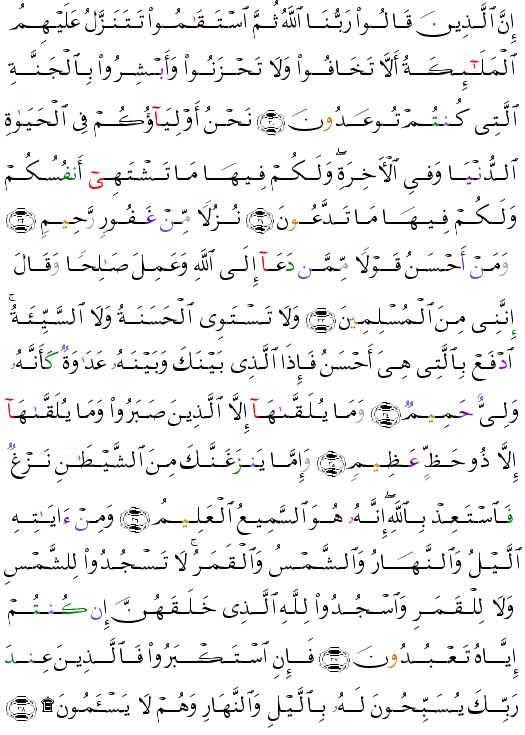 إِنَّ ٱلَّذِينَ قَالُوا۟ رَبُّنَا ٱللَّهُ ثُمَّ ٱسْتَقَٰمُوا۟ تَتَنَزَّلُ عَلَيْهِمُ
ٱلْمَلَٰٓئِكَةُ أَلَّا تَخَافُوا۟ وَلَا تَحْزَنُوا۟ وَأَبْشِرُوا۟ بِٱلْجَنَّةِ
ٱلَّتِى كُنتُمْ تُوعَدُونَ ۝٣٠ نَحْنُ أَوْلِيَآؤُكُمْ فِى ٱلْحَيَوٰةِ
ٱلدُّنْيَا وَفِى ٱلْءَاخِرَةِ ۖ وَلَكُمْ فِيهَا مَا تَشْتَهِىٓ أَنفُسُكُمْ
وَلَكُمْ فِيهَا مَا تَدَّعُونَ ۝٣١ نُزُلًا مِّنْ غَفُورٍ رَّحِيمٍ ۝٣٢
وَمَنْ أَحْسَنُ قَوْلًا مِّمَّن دَعَآ إِلَى ٱللَّهِ وَعَمِلَ صَٰلِحًا وَقَالَ
إِنَّنِى مِنَ ٱلْمُسْلِمِينَ ۝٣٣ وَلَا تَسْتَوِى ٱلْحَسَنَةُ وَلَا ٱلسَّيِّئَةُ ۚ
ٱدْفَعْ بِٱلَّتِى هِىَ أَحْسَنُ فَإِذَا ٱلَّذِى بَيْنَكَ وَبَيْنَهُۥ عَدَٰوَةٌ كَأَنَّهُۥ
وَلِىٌّ حَمِيمٌ ۝٣٤ وَمَا يُلَقَّىٰهَآ إِلَّا ٱلَّذِينَ صَبَرُوا۟ وَمَا يُلَقَّىٰهَآ
إِلَّا ذُو حَظٍّ عَظِيمٍ ۝٣٥ وَإِمَّا يَنزَغَنَّكَ مِنَ ٱلشَّيْطَٰنِ نَزْغٌ
فَٱسْتَعِذْ بِٱللَّهِ ۖ إِنَّهُۥ هُوَ ٱلسَّمِيعُ ٱلْعَلِيمُ ۝٣٦ وَمِنْ ءَايَٰتِهِ
ٱلَّيْلُ وَٱلنَّهَارُ وَٱلشَّمْسُ وَٱلْقَمَرُ ۚ لَا تَسْجُدُوا۟ لِلشَّمْسِ
وَلَا لِلْقَمَرِ وَٱسْجُدُوا۟ لِلَّهِ ٱلَّذِى خَلَقَهُنَّ إِن كُنتُمْ
إِيَّاهُ تَعْبُدُونَ ۝٣٧ فَإِنِ ٱسْتَكْبَرُوا۟ فَٱلَّذِينَ عِندَ
رَبِّكَ يُسَبِّحُونَ لَهُۥ بِٱلَّيْلِ وَٱلنَّهَارِ وَهُمْ لَا يَسْـَٔمُونَ ۩ ۝٣٨